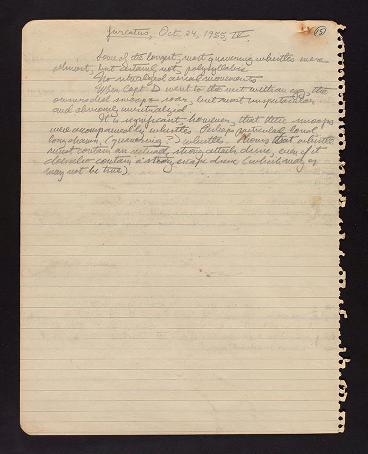 furcatus, Oct 24, 1955, IV (15)
Some of the longest, most quavering whistles were
almost, but certainly not, polysyllabic
No ritualized aerial movements
When Capt D went to the nest with an egg, the
owners did swoops soar, but most unspectacular
and obviously unritualized.
It is significant, however, that these swoops
were accompanied by whistles. Perhaps particular loud,
long drawn, (quavering?) whistles. Shows that whistle
must contain an actual, strong attack drive, even if it
does also contain a strong escape drive (which may or
may not be true).